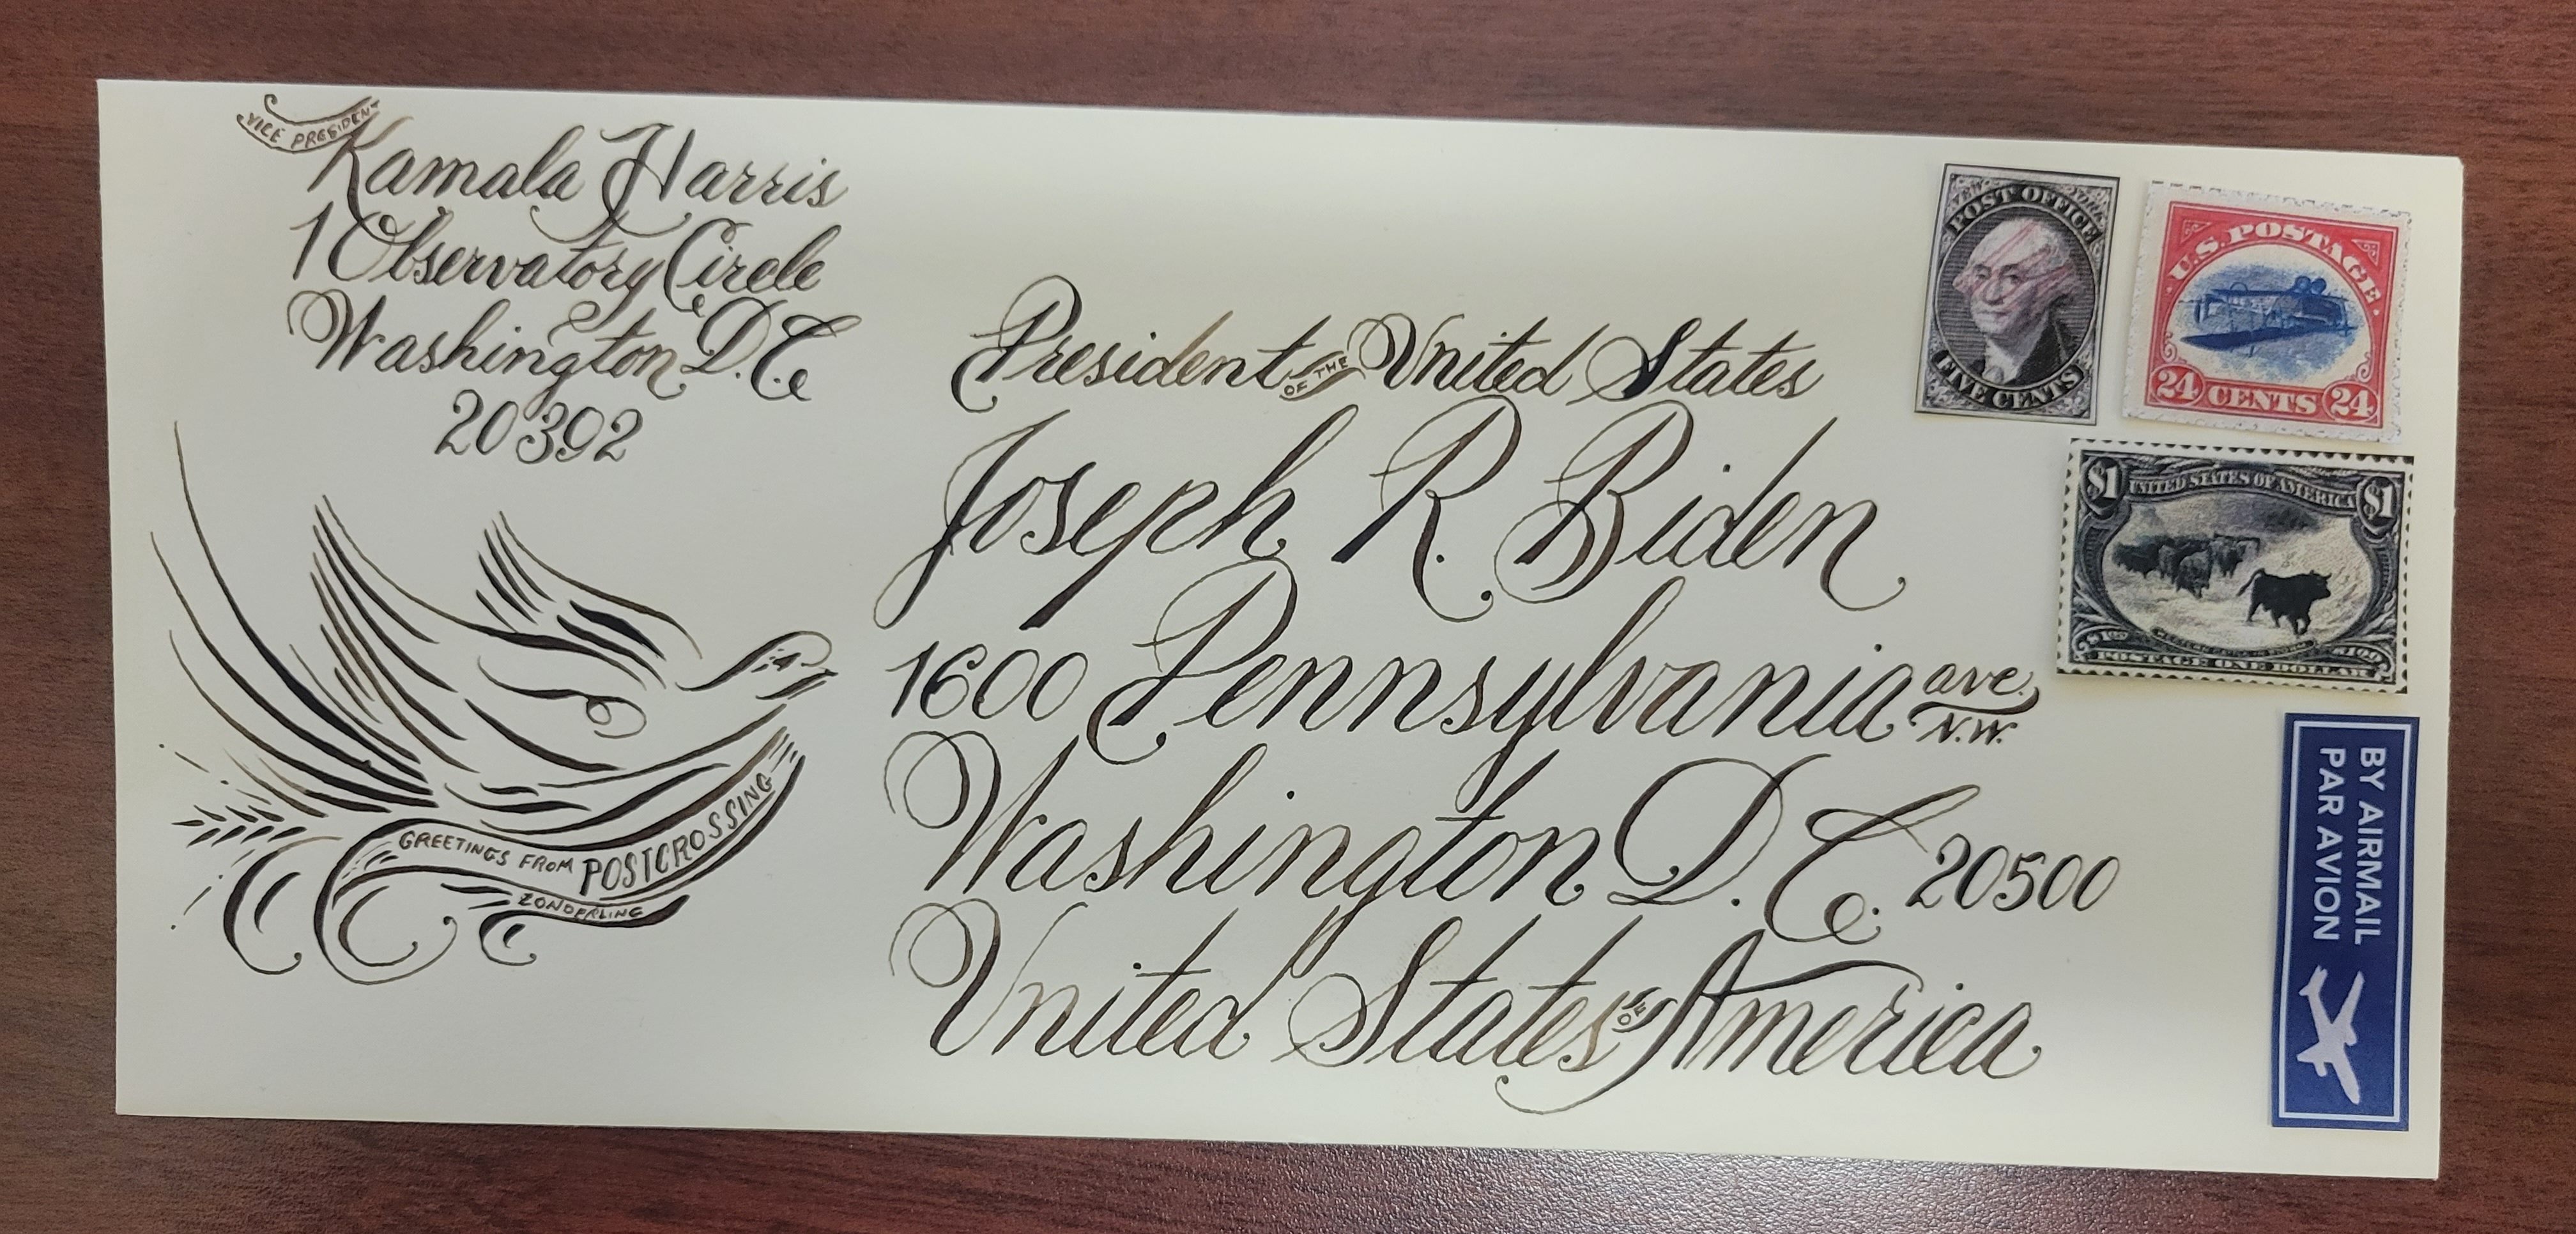 VICE PRESIDENT
Kamala Harris
1 Observatory Circle
Washington D.C.
20392
GREETINGS FROM POSTCROSSING
ZONDERLING
President OF THE United States
Joseph R. Biden
1600 Pennsylvania ave. N.W.
Washington D.C. 20500
United States OF America
POST OFFICE
FIVE CENTS
U.S. POSTAGE
24 CENTS 24
$1 UNITED STATES OF AMERICA $1
$100 $100
POSTAGE ONE DOLLAR
BY AIRMAIL
PAR AVION